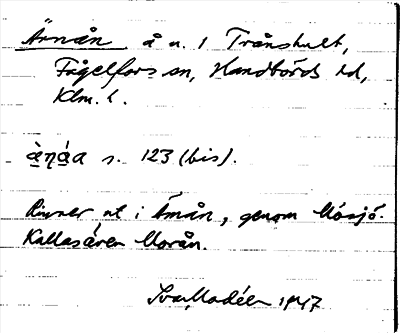 Ärnån å n. 1 Trånshult,
Fågelfors sn, Handbörds hd,
Klm. l.
s. 123 (bis).
Rinner ut i Åmån, genom Mösjö.
Kallas även Morån.
Ivar Modéer 1947